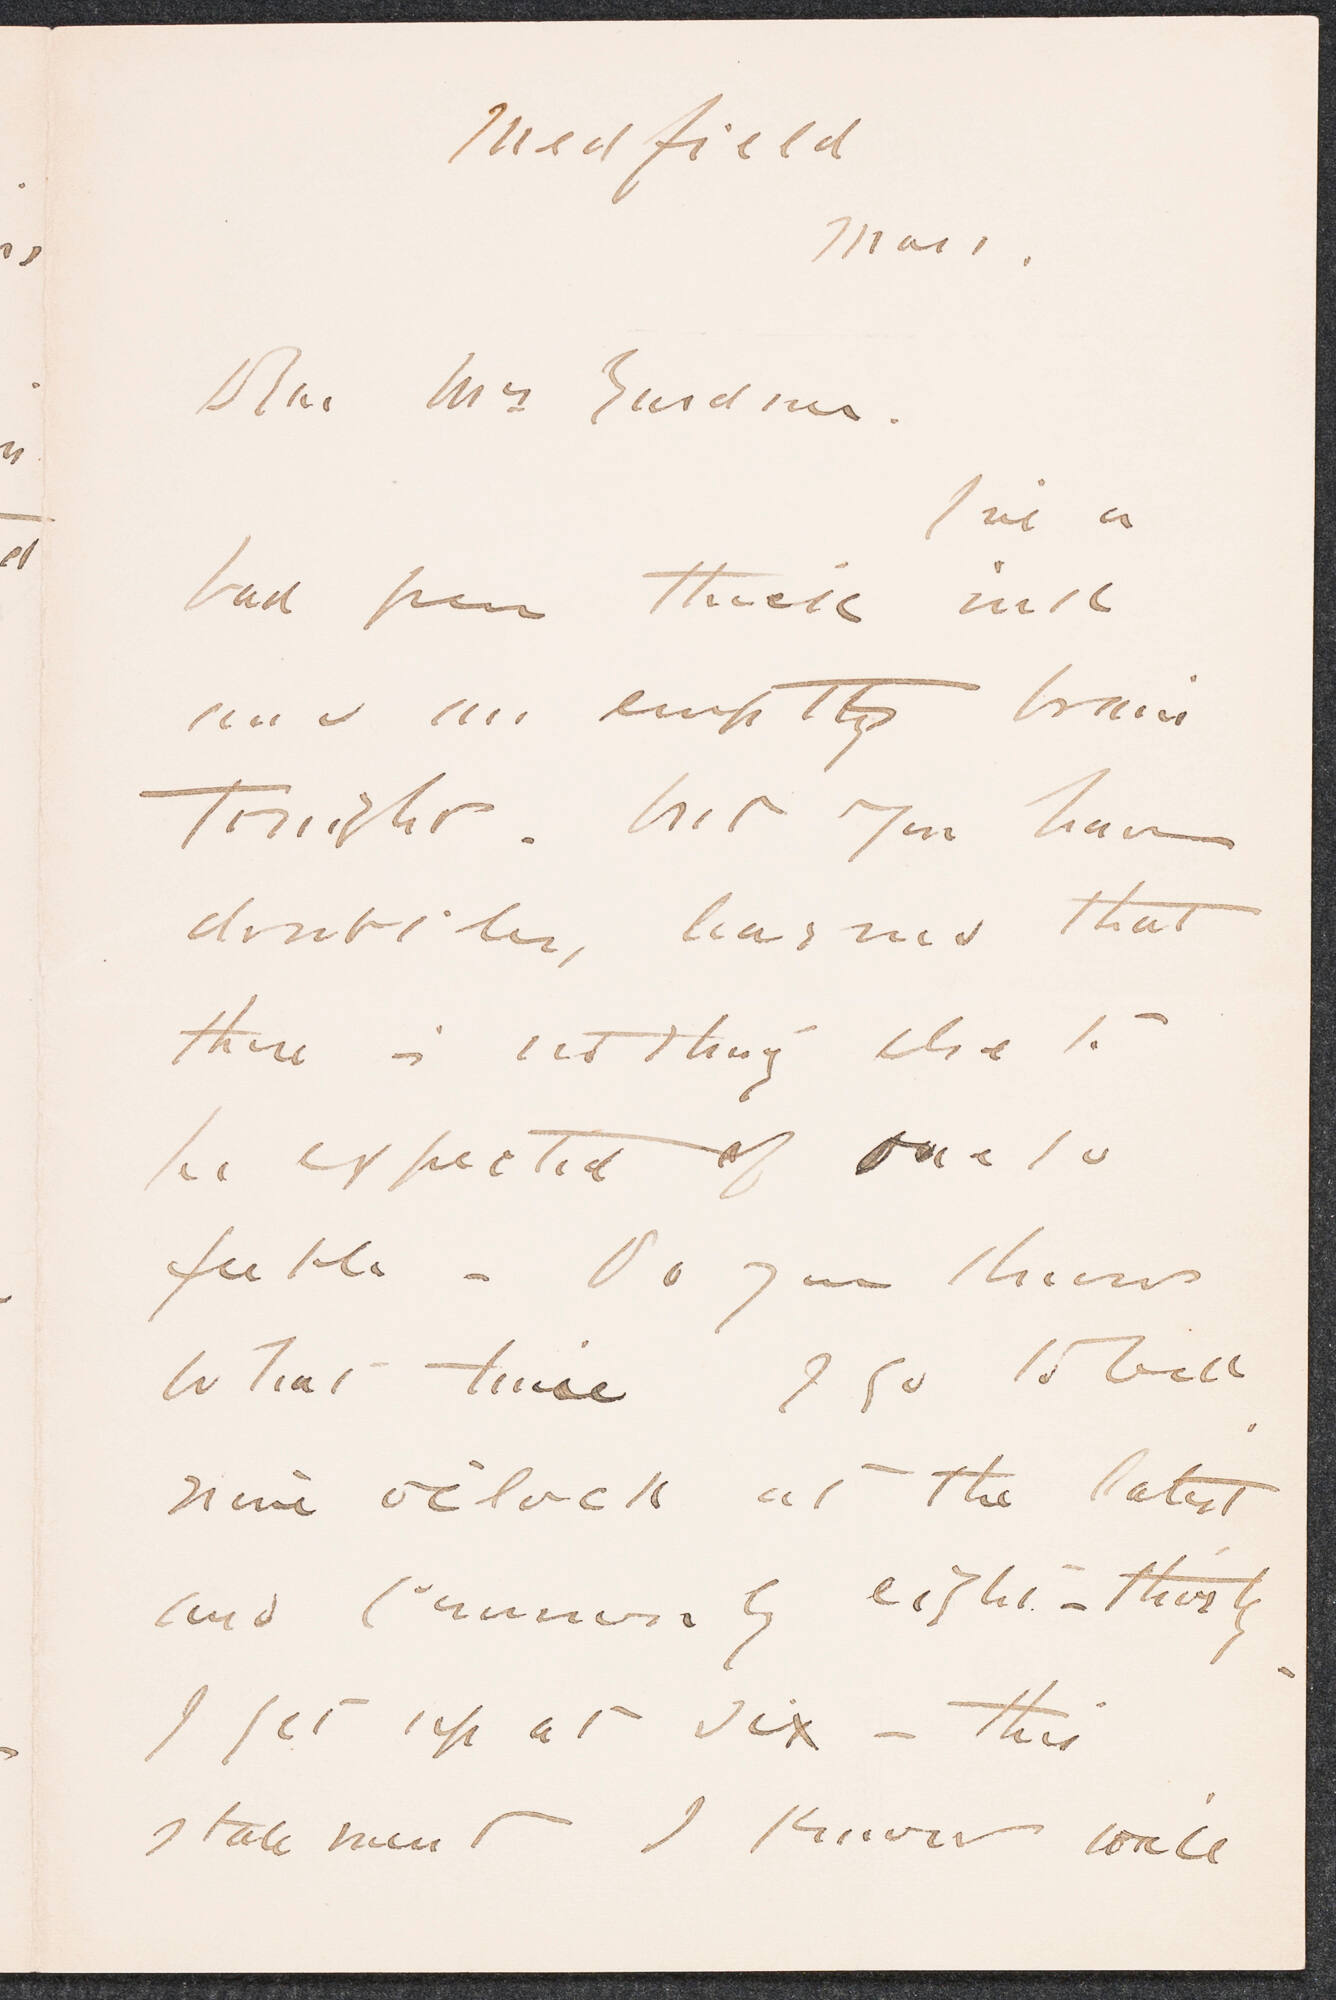 Medfield
Mass.
Dear Mrs Gardner.
I've a
bad pen thick ink
and an empty brain
tonight. but you have
doubtless, learned that
there is nothing else to
be expected of one so
feeble - Do you know
what time I go to bed.
nine o'clock at the latest
and commonly eight-thirty-
I get up at six - this
statement I know will